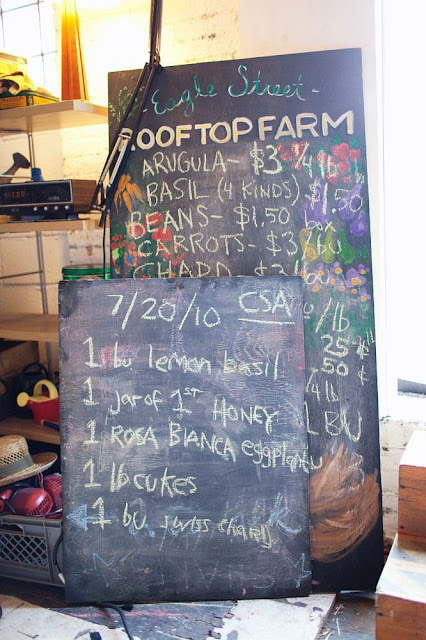 Eagle Street
ROOFTOP FARM
ARUGULA- $3 1/4 lb
BASIL (4 KINDS) $1.50
BEANS- $1.50 box
CARROTS- $3/bu
CHARD $3/
/lb
25¢
50¢
1/4 lb
1 BU
7/20/10 CSA
1 bu lemon basil
1 Jar of 1ST HONEY
1 ROSA BIANCA eggplant
1 lb cukes
1 bu swiss chard